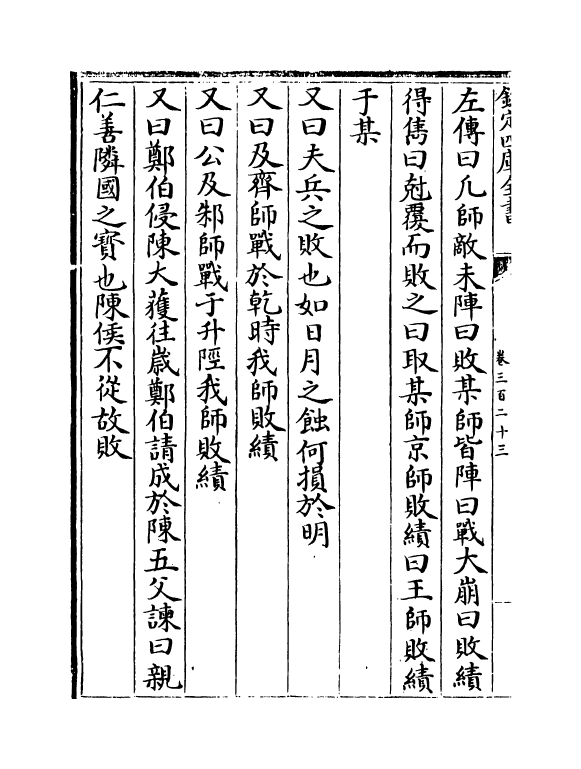 欽定四庫全書
卷三百二十三
左傳曰凡師敵未陣曰敗某師皆陣曰戰大崩曰敗績
得雋曰尅覆而敗之曰取某師京師敗績曰王師敗績
于某
又曰夫兵之敗也如日月之蝕何損於明
又曰及齊師戰於乾時我師敗績
又曰公及邾師戰于升陘我師敗績
又曰鄭伯侵陳大獲往嵗鄭伯請成於陳五父諫曰親
仁善隣國之寶也陳侯不從故敗